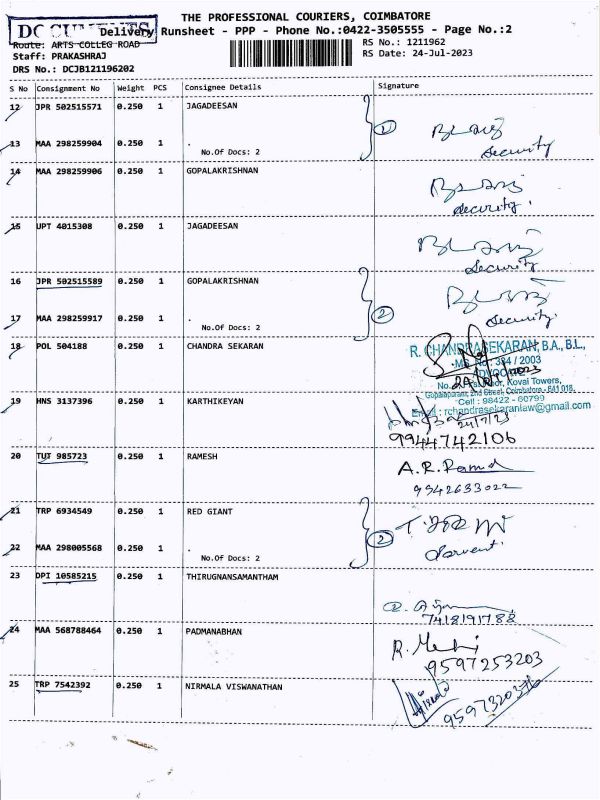 THE PROFESSIONAL COURIERS, COIMBATORE
DOCUMENTS
Delivery Runsheet - PPP - Phone No.:0422-3505555 - Page No.:2
Route: ARTS COLLEG ROAD
RS No.: 1211962
Staff: PRAKASHRAJ
RS Date: 24-Jul-2023
DRS No.: DCJB121196202
S No Consignment No Weight PCS Consignee Details Signature
12 JPR 502515571 0.250 1 JAGADEESAN
1
13 MAA 298259904 0.250 1 .
No.Of Docs: 2
security
14 MAA 298259906 0.250 1 GOPALAKRISHNAN
security.
15 UPT 4015308 0.250 1 JAGADEESAN
Security
16 JPR 502515589 0.250 1 GOPALAKRISHNAN
2
17 MAA 298259917 0.250 1 .
No.Of Docs: 2
security.
18 POL 504188 0.250 1 CHANDRA SEKARAN
R. CHANDRASEKARAN, B.A., B.L.,
MS. No: 384 / 2003
ADVOCATE
Floor, Kovai Towers,
Gopalapuram, 2nd Street, Coimbatore - 641 018.
Cell : 98422 - 60799
Email : rchandrasekaranlaw@gmail.com
19 HNS 3137396 0.250 1 KARTHIKEYAN
24/7/23
9944742106
20 TUT 985723 0.250 1 RAMESH
A.R.
9942633022
21 TRP 6934549 0.250 1 RED GIANT
2
22 MAA 298005568 0.250 1 .
No.Of Docs: 2
23 DPI 10585215 0.250 1 THIRUGNANSAMANTHAM
7418191788
24 MAA 568788464 0.250 1 PADMANABHAN
9597253203
25 TRP 7542392 0.250 1 NIRMALA VISWANATHAN